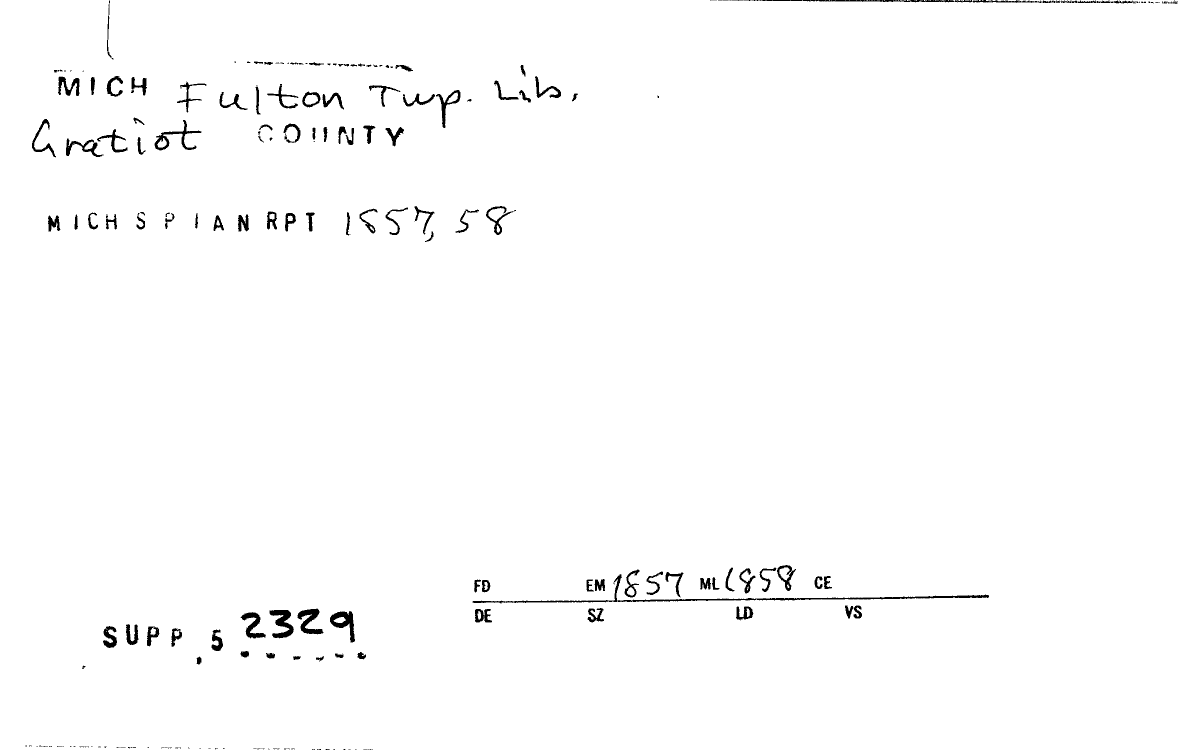 MICH Fulton Twp. Lib.
Gratiot COUNTY
MICH S P I A N RPT 1857, 58
FD EM 1857 ML 1858 CE
DE SZ LD VS
SUPP. 5 2329